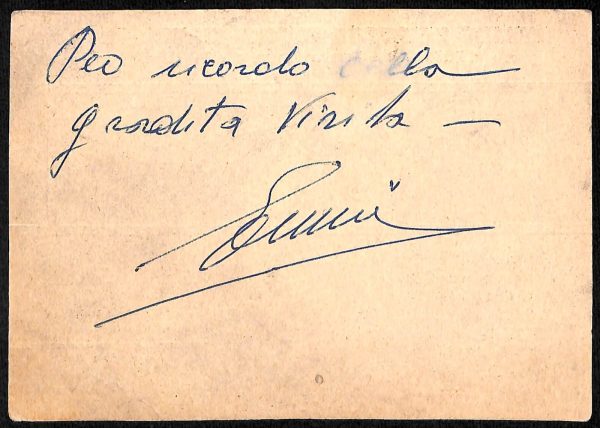 Per ricordo della
gradita visita —